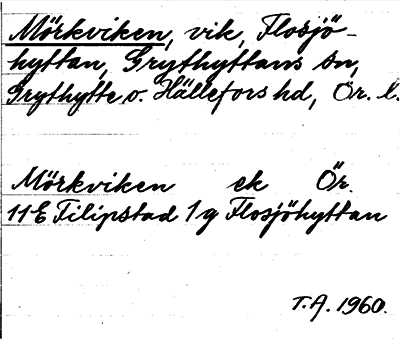 Mörkviken, vik, Flosjö-
hyttan, Grythyttans sn,
Grythytte o. Hällefors hd, Ör. l.
Mörkviken ek Ör.
11E Filipstad 1g Flosjöhyttan
T.A. 1960.